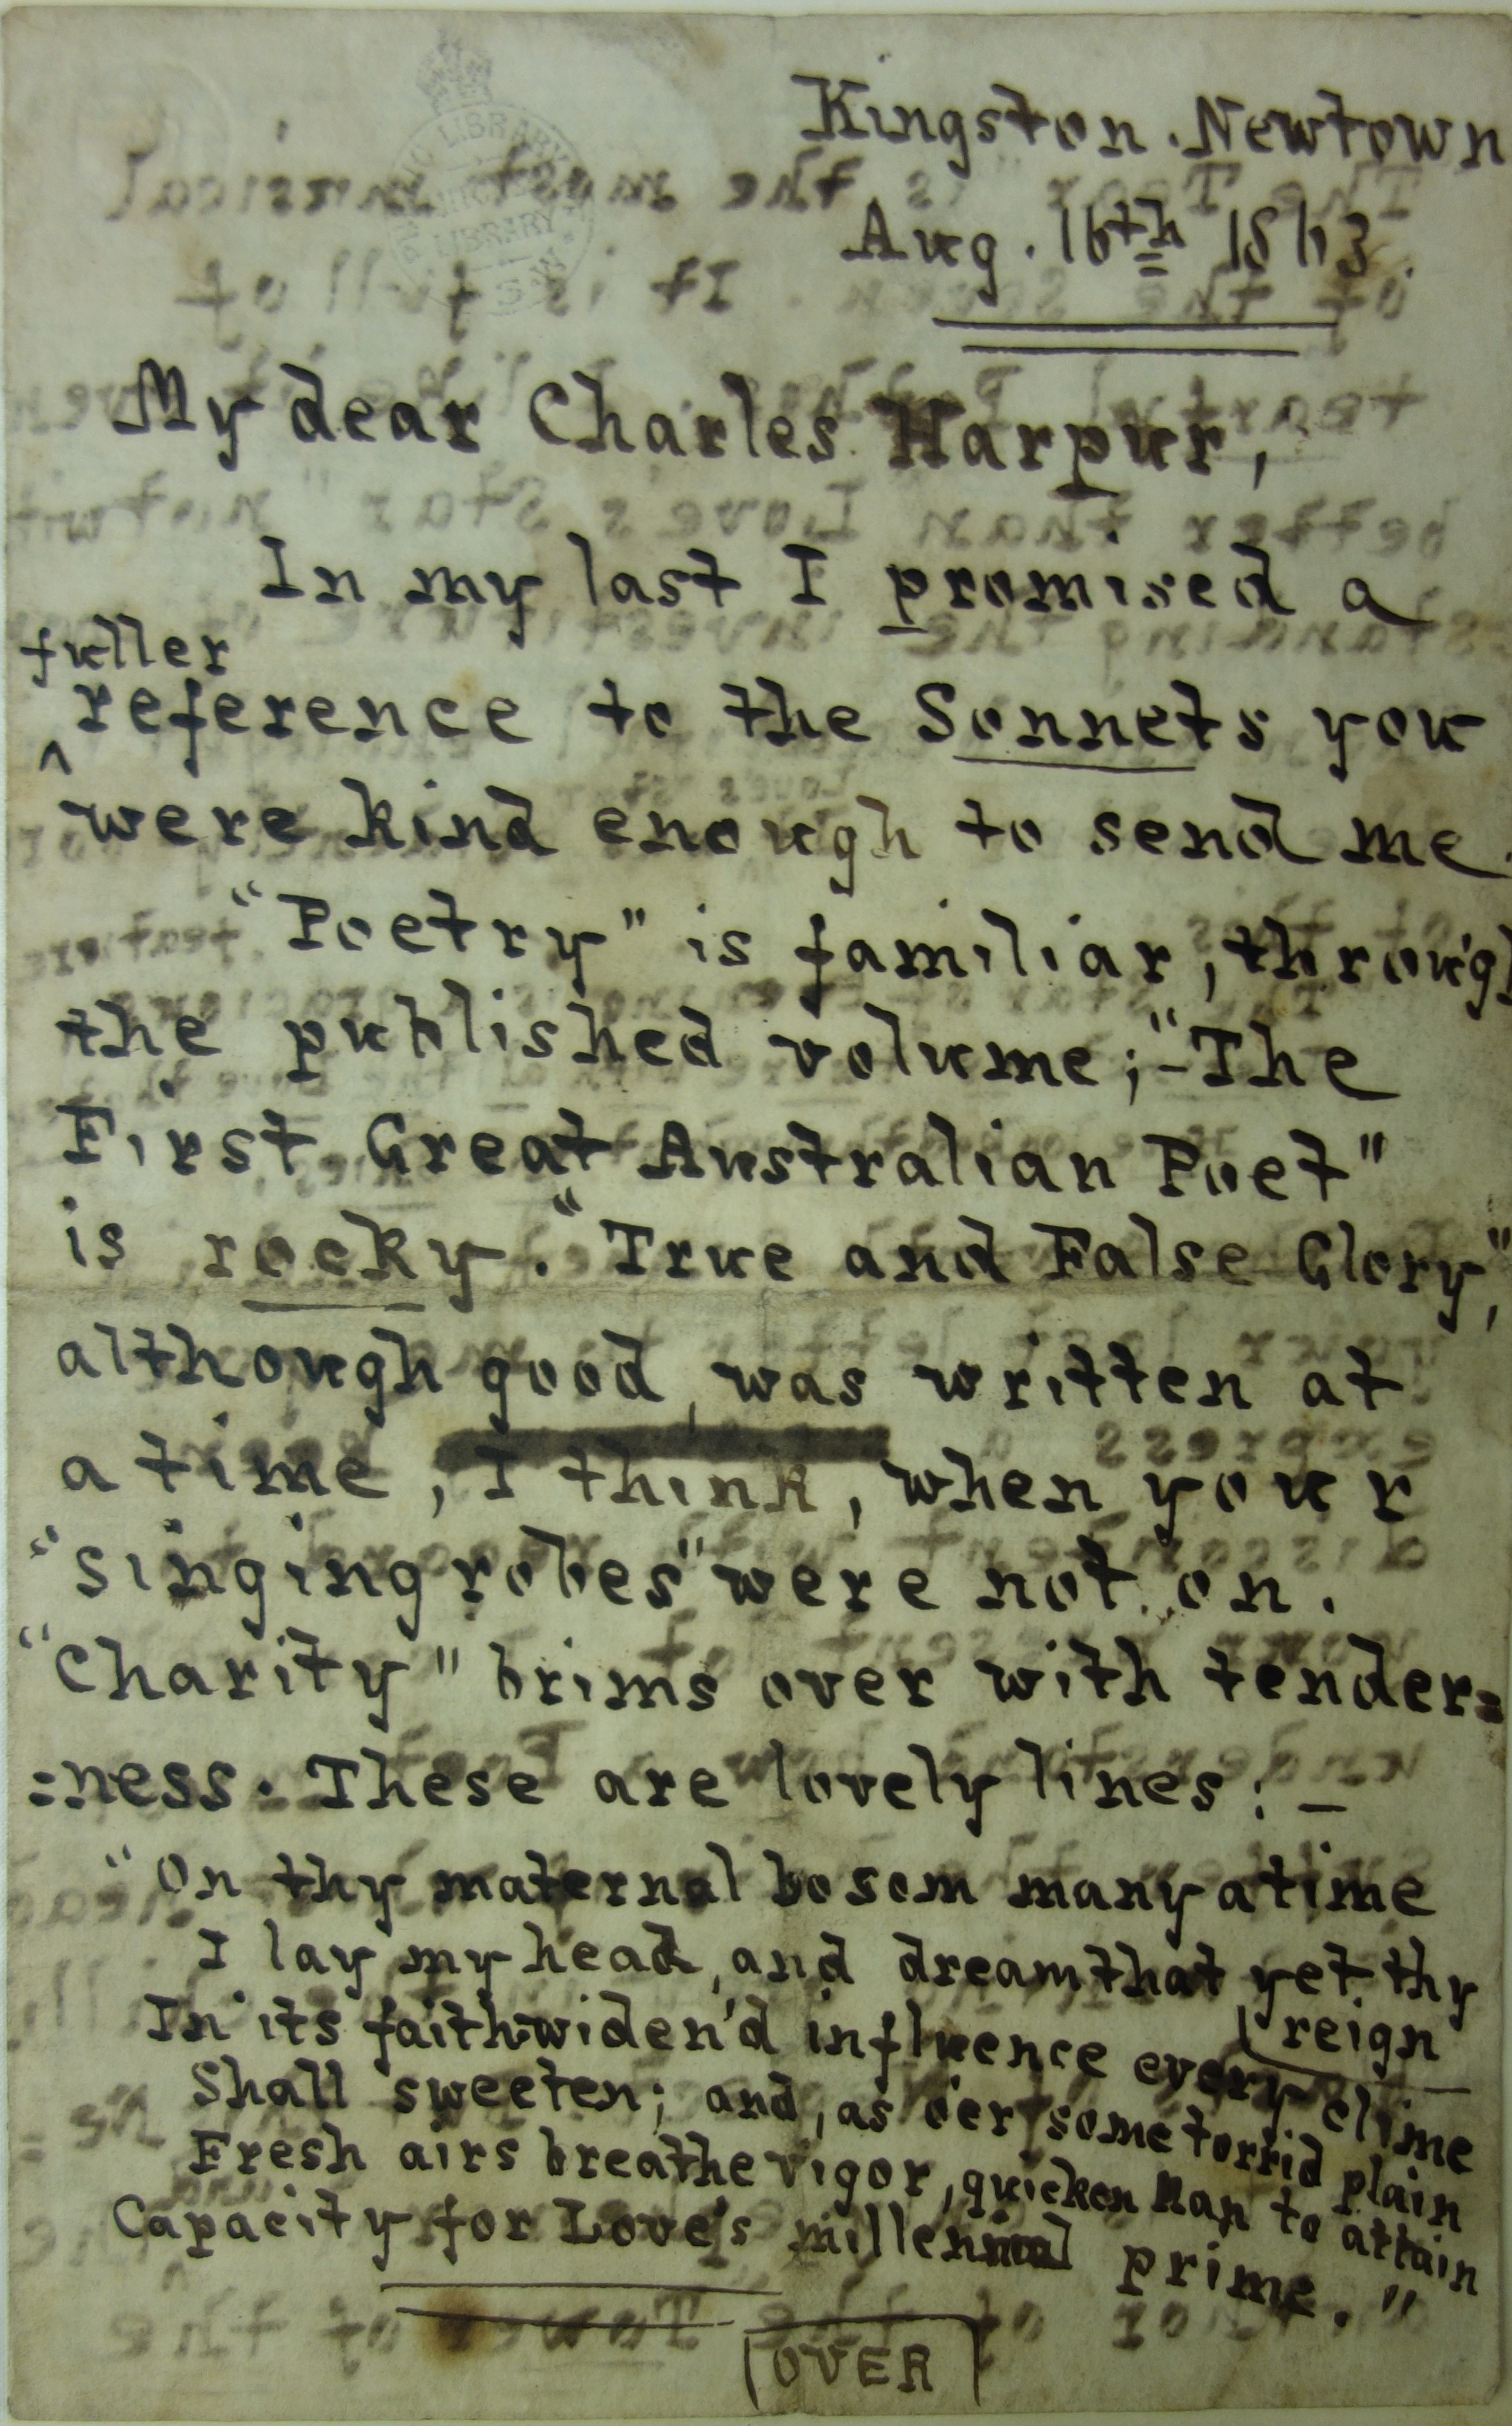 Kingston. Newtown
Aug. 16th 1863.
My dear Charles Harpur,
In my last I promised a
fuller
^ reference to the Sonnets you
were kind enough to send me.
"Poetry" is familiar, through
the published volume; "–The
First Great Australian Poet"
is rocky. "True and False Glory",
although good, was written at
a time, I think, when your
"singing robes" were not on.
"Charity" brims over with tender=
=ness. These are lovely lines: –
"On thy maternal bosom many a time
I lay my head, and dream that yet thy
(reign
In its faith-widen'd influence every clime
Shall sweeten; and, as o'er some torrid plain
Fresh airs breathe vigor, quicken Man to attain
Capacity for Love's millennial prime."
OVER
LIBRARY
LIBRARY